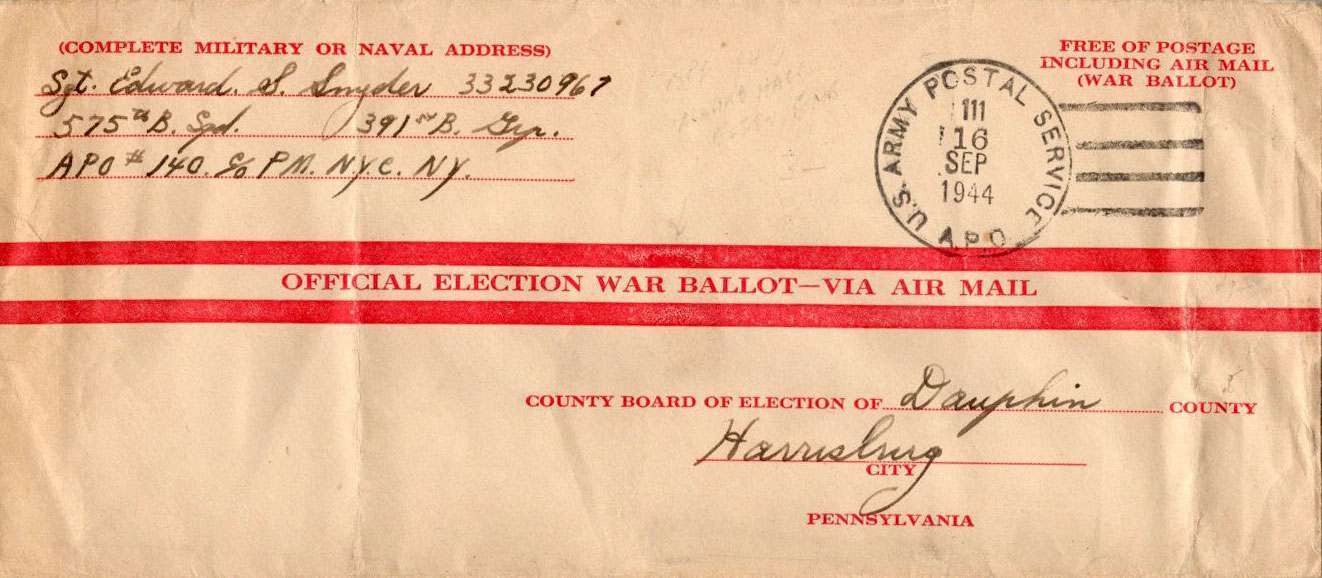 (COMPLETE MILITARY OR NAVAL ADDRESS)
Sgt. Edward. S. Snyder 33230967
575th B. Sqd. 391st B. Grp.
APO # 140. c/o P.M. N.Y.C. N.Y.
FREE OF POSTAGE
INCLUDING AIR MAIL
(WAR BALLOT)
U.S. ARMY POSTAL SERVICE
111
16
SEP
1944
A.P.O.
OFFICIAL ELECTION WAR BALLOT—VIA AIR MAIL
COUNTY BOARD OF ELECTION OF Dauphin COUNTY
Harrisburg
CITY
PENNSYLVANIA